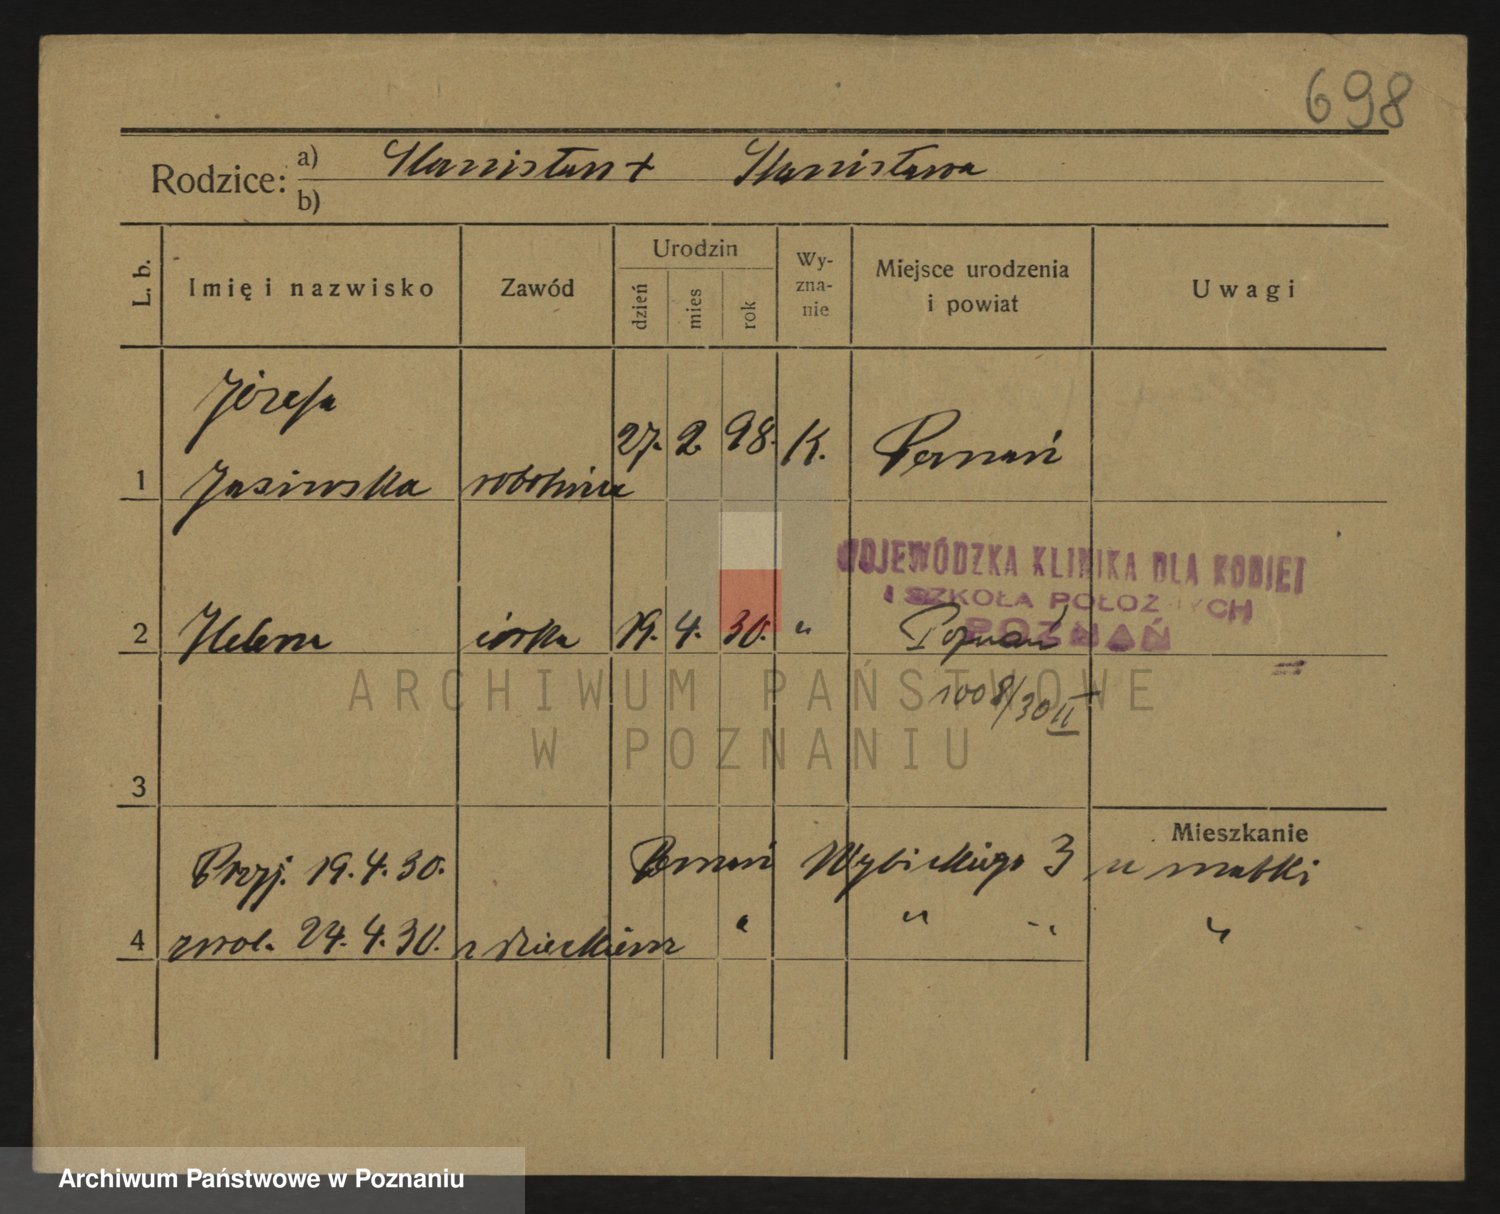 698
Rodzice: a) Stanisław + Stanisława
b)
L. b.
Imię i nazwisko
Zawód
Urodzin
dzień
mies
rok
Wy-
zna-
nie
Miejsce urodzenia
i powiat
Uwagi
Józefa
1 Jasiewska robotnica 27. 2. 98. K. Poznań
WOJEWÓDZKA KLINIKA DLA KOBIET
I SZKOŁA POŁOŻNYCH
POZNAŃ
2 Helena córka 19. 4. 30. " Poznań
1008/30 II
ARCHIWUM PAŃSTWOWE
W POZNANIU
3
Mieszkanie
Przyj. 19. 4. 30. Poznań Wybickiego 3 u matki
4 zwol. 24. 4. 30. z dzieckiem " " " "
Archiwum Państwowe w Poznaniu